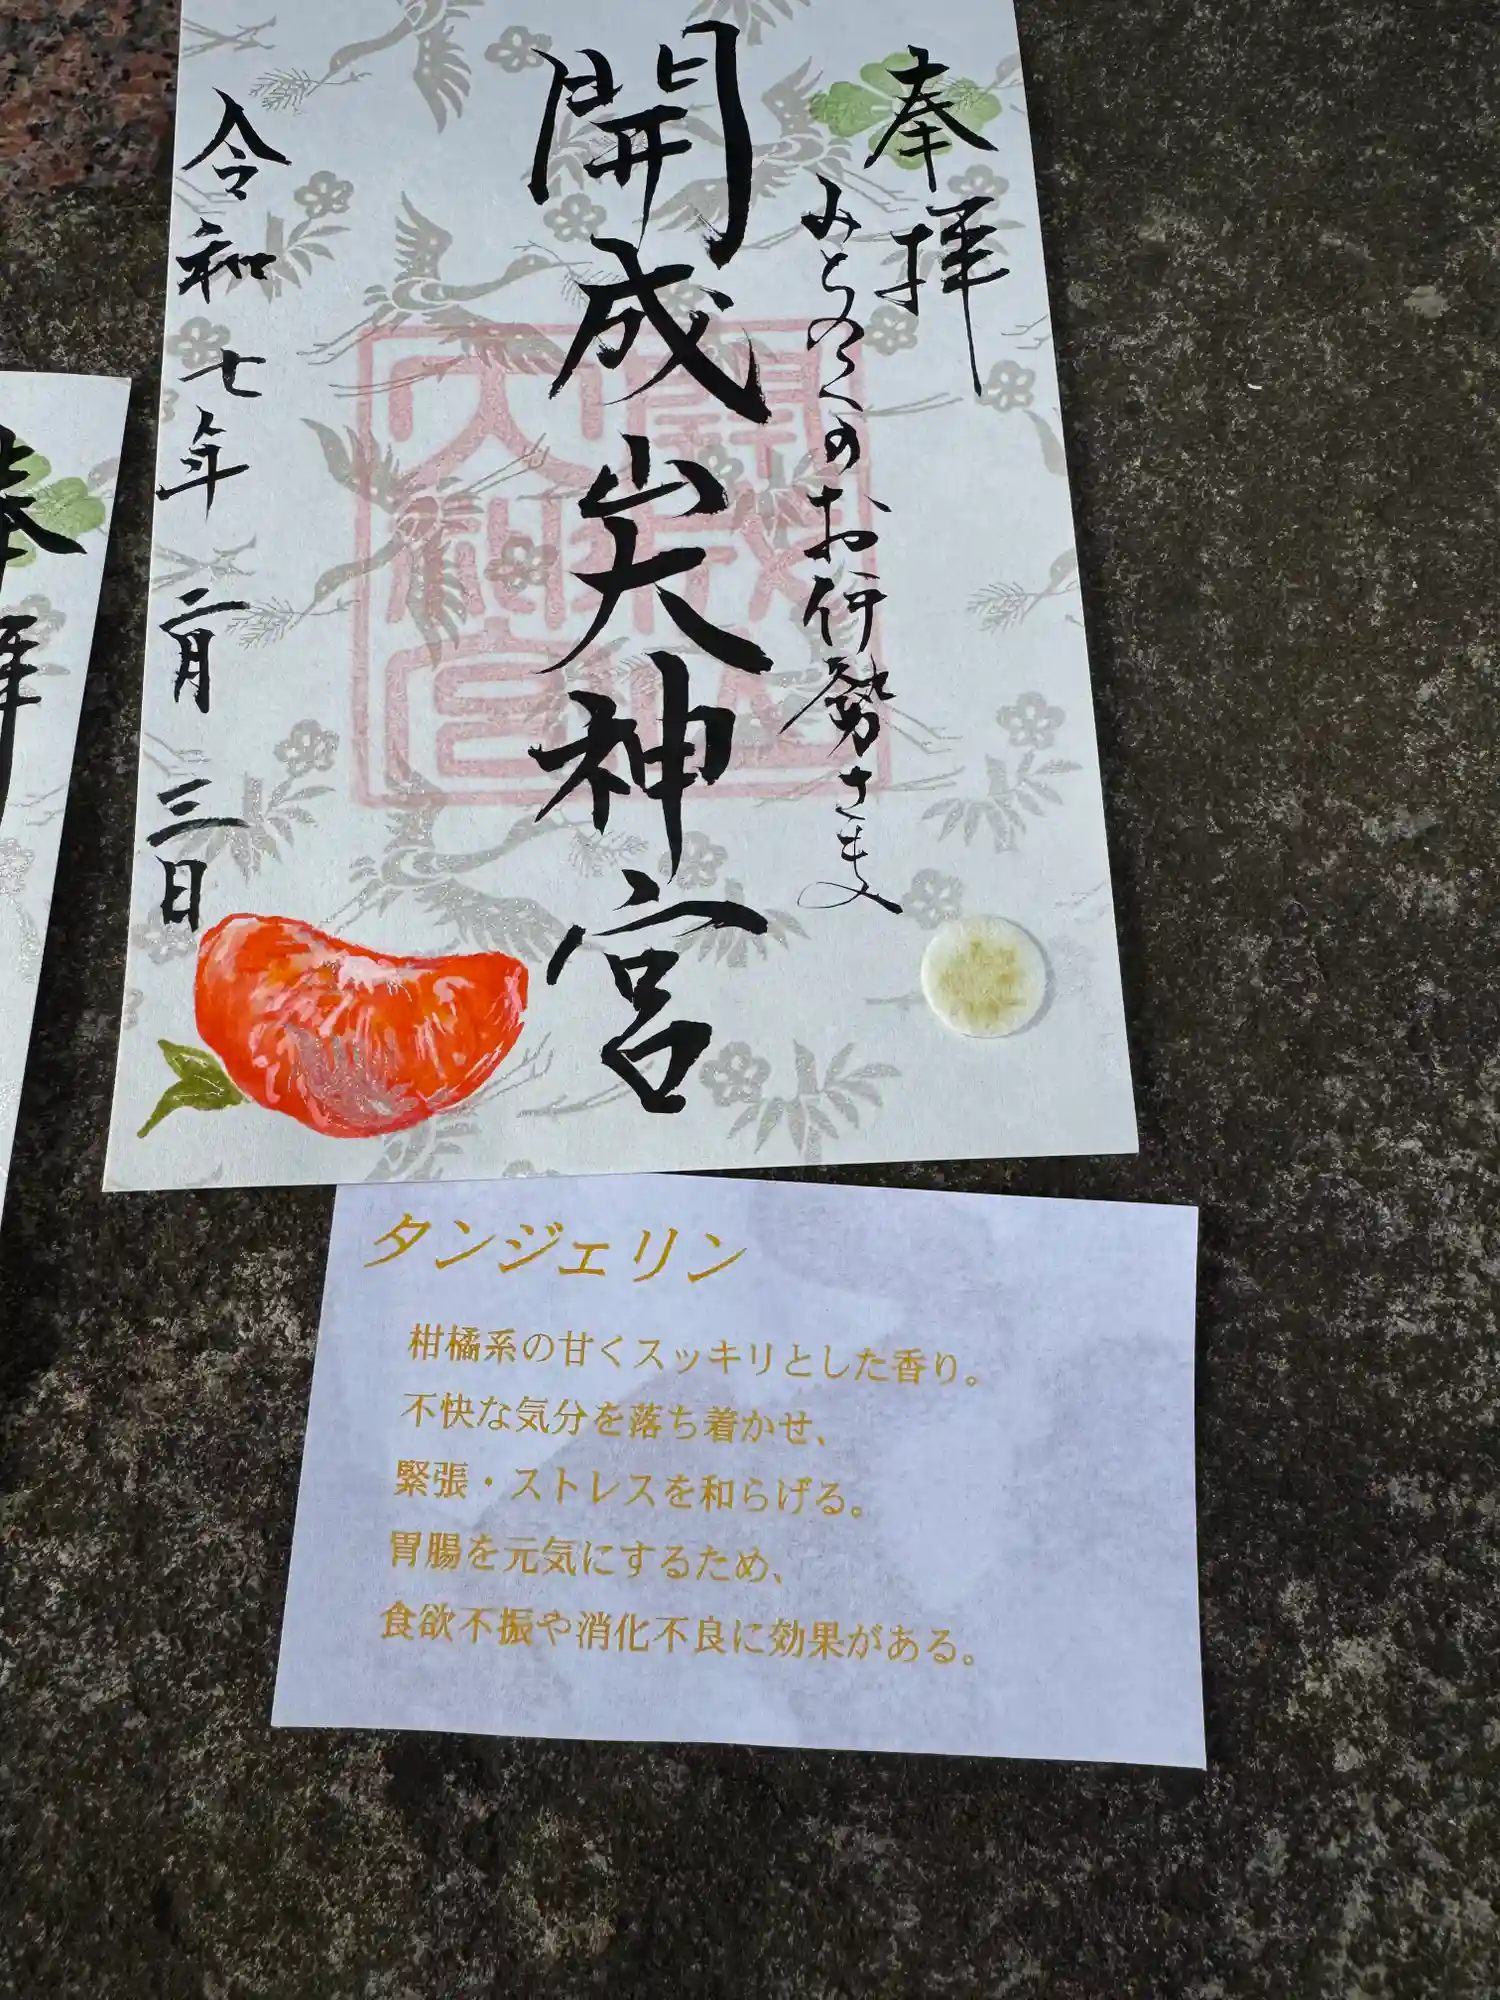 奉拝
みちのくのお伊勢さま
開成山大神宮
令和七年二月三日
開成山大神宮
奉拝
タンジェリン
柑橘系の甘くスッキリとした香り。
不快な気分を落ち着かせ、
緊張・ストレスを和らげる。
胃腸を元気にするため、
食欲不振や消化不良に効果がある。